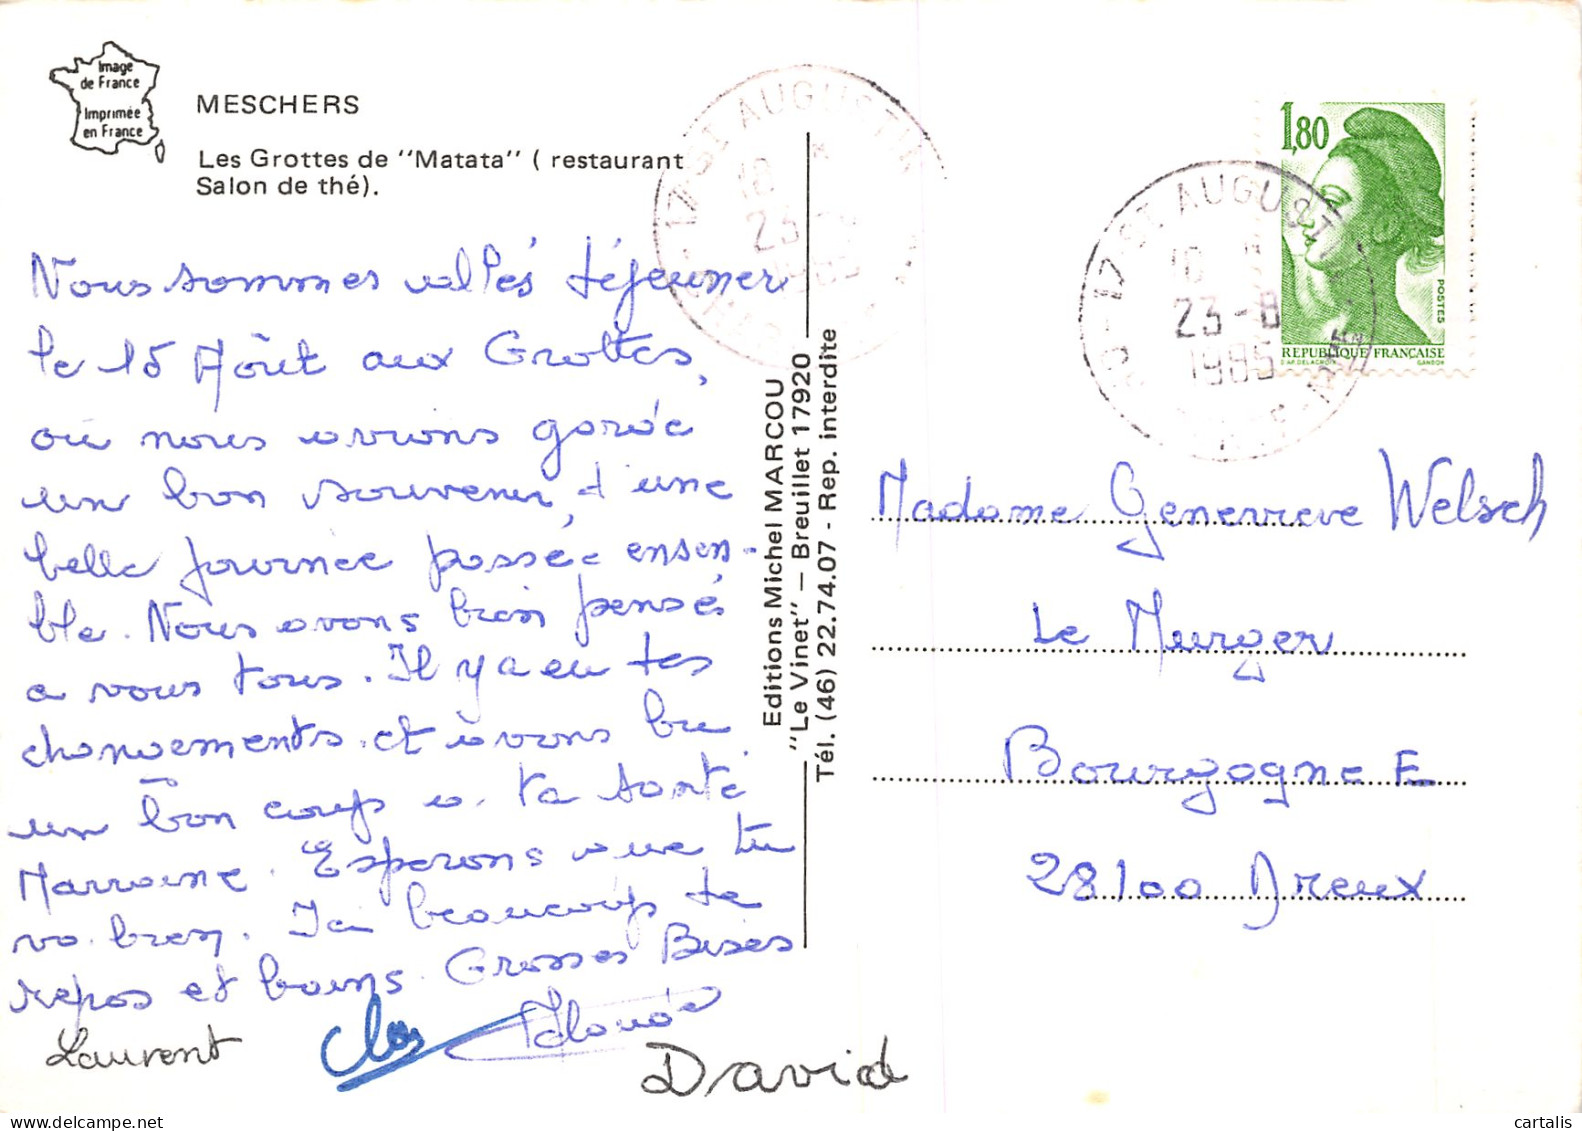 Image
de France
Imprimée
en France
MESCHERS
Les Grottes de "Matata" ( restaurant
Salon de thé).
Nous sommes allés déjeuner
le 15 Août aux Grottes,
où nous avions gardé
un bon souvenir, d'une
belle journée passée ensem-
ble. Nous avons bien pensé
a vous tous. Il y a eu des
changements et avons bu
un bon coup a ta santé
Marraine. Espérons que tu
va bien. Ici beaucoup de
repos et bains. Grosses Bises
Laurent
David
Editions Michel MARCOU
"Le Vinet" – Breuillet 17920
Tél. (46) 22.74.07 - Rep. interdite
17 ST AUGUSTIN
18
23
17 ST AUGUSTIN
23-8
1985
1,80
POSTES
REPUBLIQUE FRANÇAISE
D'AP. DELACROIX GANDON
Madame Genevieve Welsch
Le Murger
Bourgogne E
28100 Dreux
cartalis